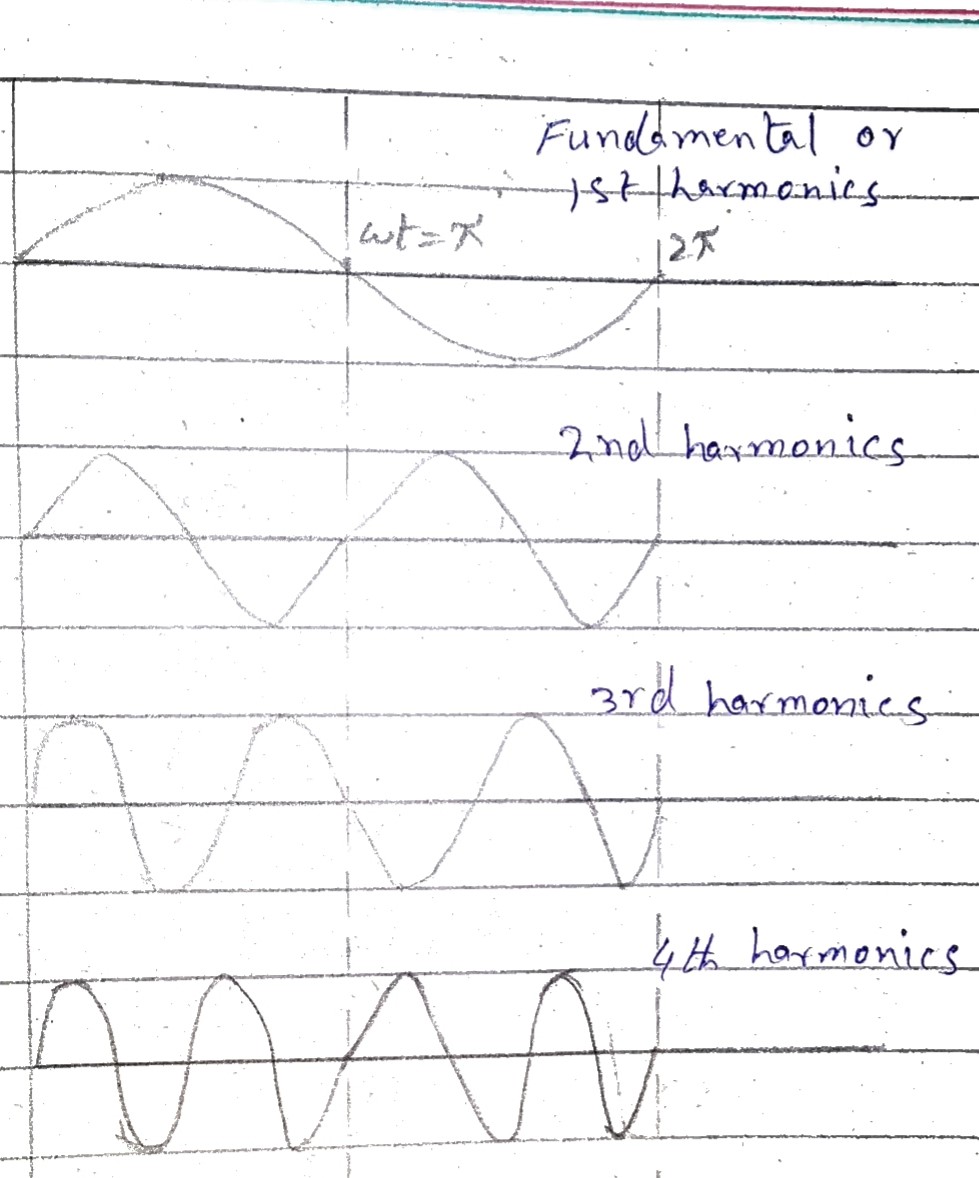 Fundamental or
1st harmonics
ωt = π
2π
2nd harmonics
3rd harmonics
4th harmonics